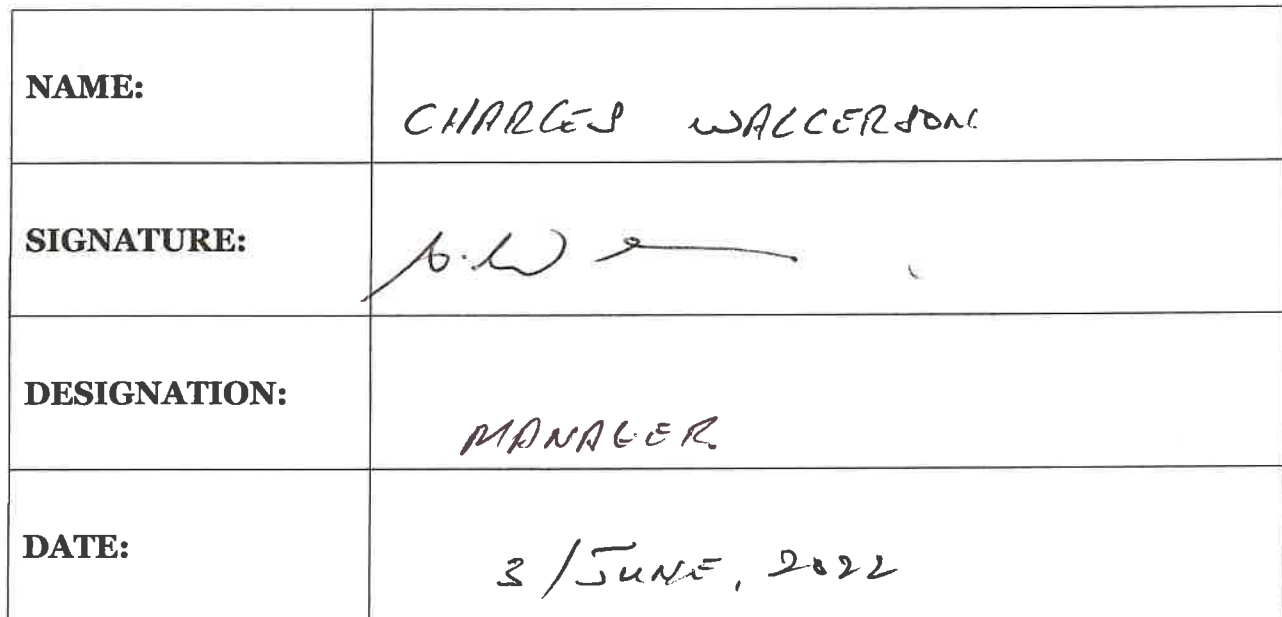 NAME: CHARLES WALCERSON
SIGNATURE:
DESIGNATION: MANAGER
DATE: 3/JUNE, 2022